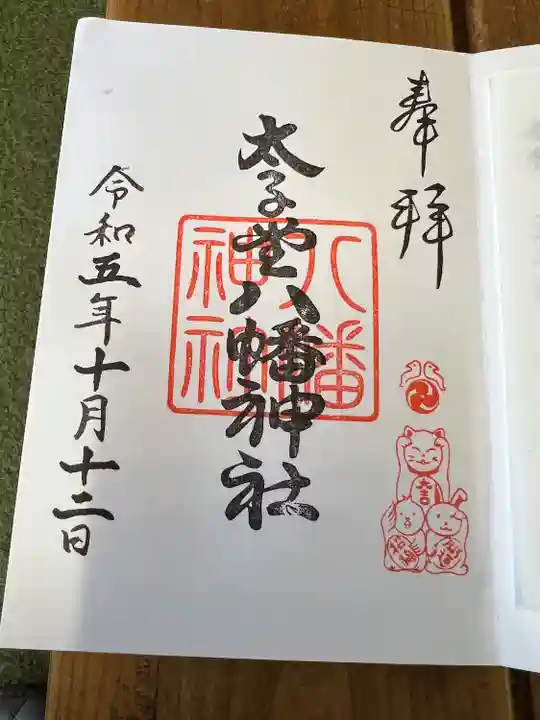 奉拝
太子堂八幡神社
八幡
神社
大吉
令和五年十月十二日